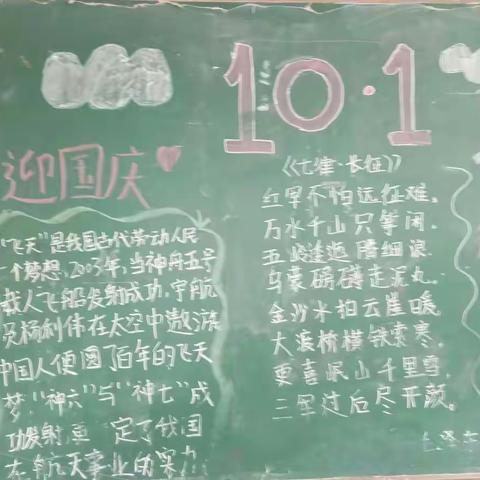 10·1
迎国庆
"飞天"是我国古代劳动人民
一个梦想,2003年,当神舟五号
载人飞船发射成功,宇航
员杨利伟在太空中遨游
中国人便圆了百年的飞天
梦,"神六"与"神七"成
功发射,更 定了我国
在航天事业的实力
《七律·长征》
红军不怕远征难,
万水千山只等闲.
五岭逶迤腾细浪
乌蒙磅礴走泥丸.
金沙水拍云崖暖,
大渡桥横铁索寒.
更喜岷山千里雪,
三军过后尽开颜.
毛泽东